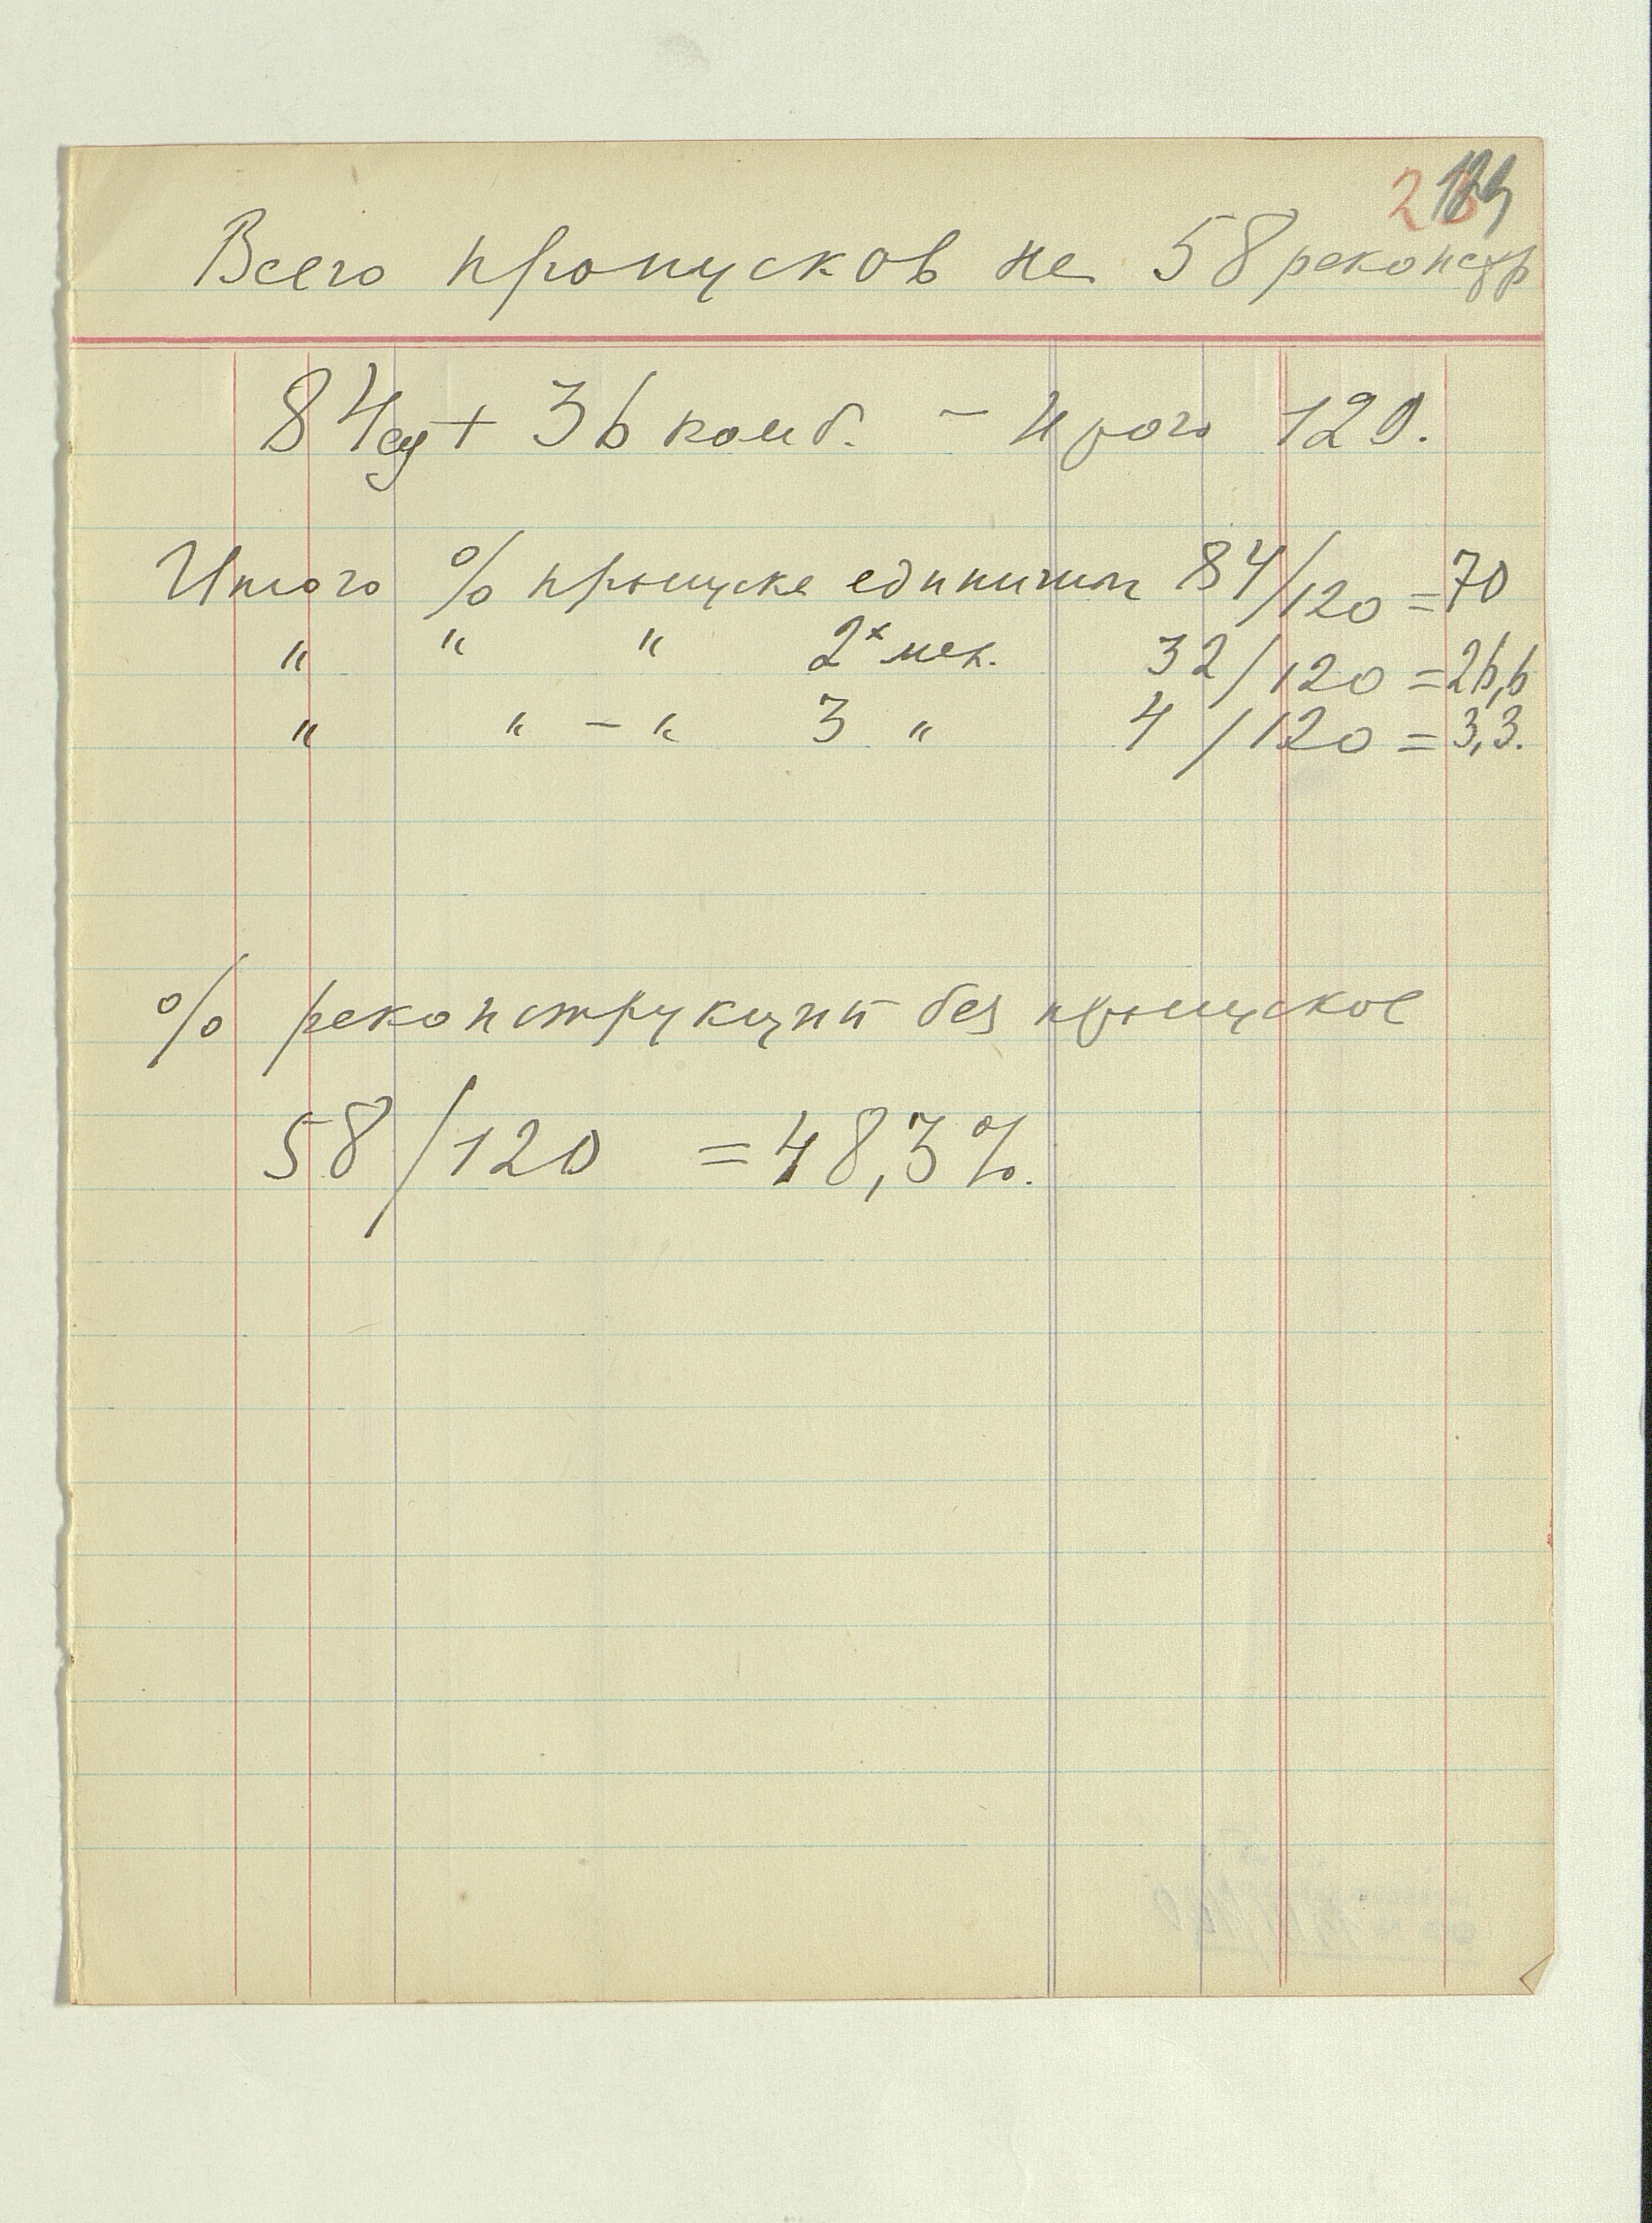 Всего пропусков на 58 реконстр
84 ед + 36 комб. – Итого 120.
Итого % пропуске единичн 84/120 = 70
" " " 2х мех. 32/120 = 26,6
" " – " 3 " 4/120 = 3,3.
% реконструкций без пропусков
58/120 = 48,3%.